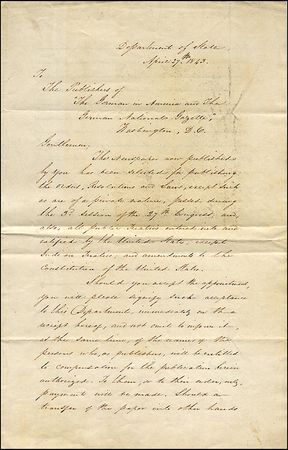 Department of State,
April 27th 1843.
To
The Publishers of
"The German in America and The
German National Gazette"
Washington, D.C.
Gentlemen,
The Newspaper now published
by you has been selected for publishing
the Orders, Resolutions and Laws, except such
as are of a private nature, passed during
the 3d session of the 27th Congress, and,
also, all public Treaties entered into and
ratified by the United States, except
Indian Treaties, and amendments to the
Constitution of the United States.
Should you accept the appointment,
you will please signify such acceptance
to this Department, immediately on the
receipt hereof, and not omit to inform it,
at the same time, of the names of the
persons who, as publishers, will be entitled
to compensation for the publication herein
authorized. To them, or to their order, only,
payment will be made. Should a
transfer of the paper into other hands